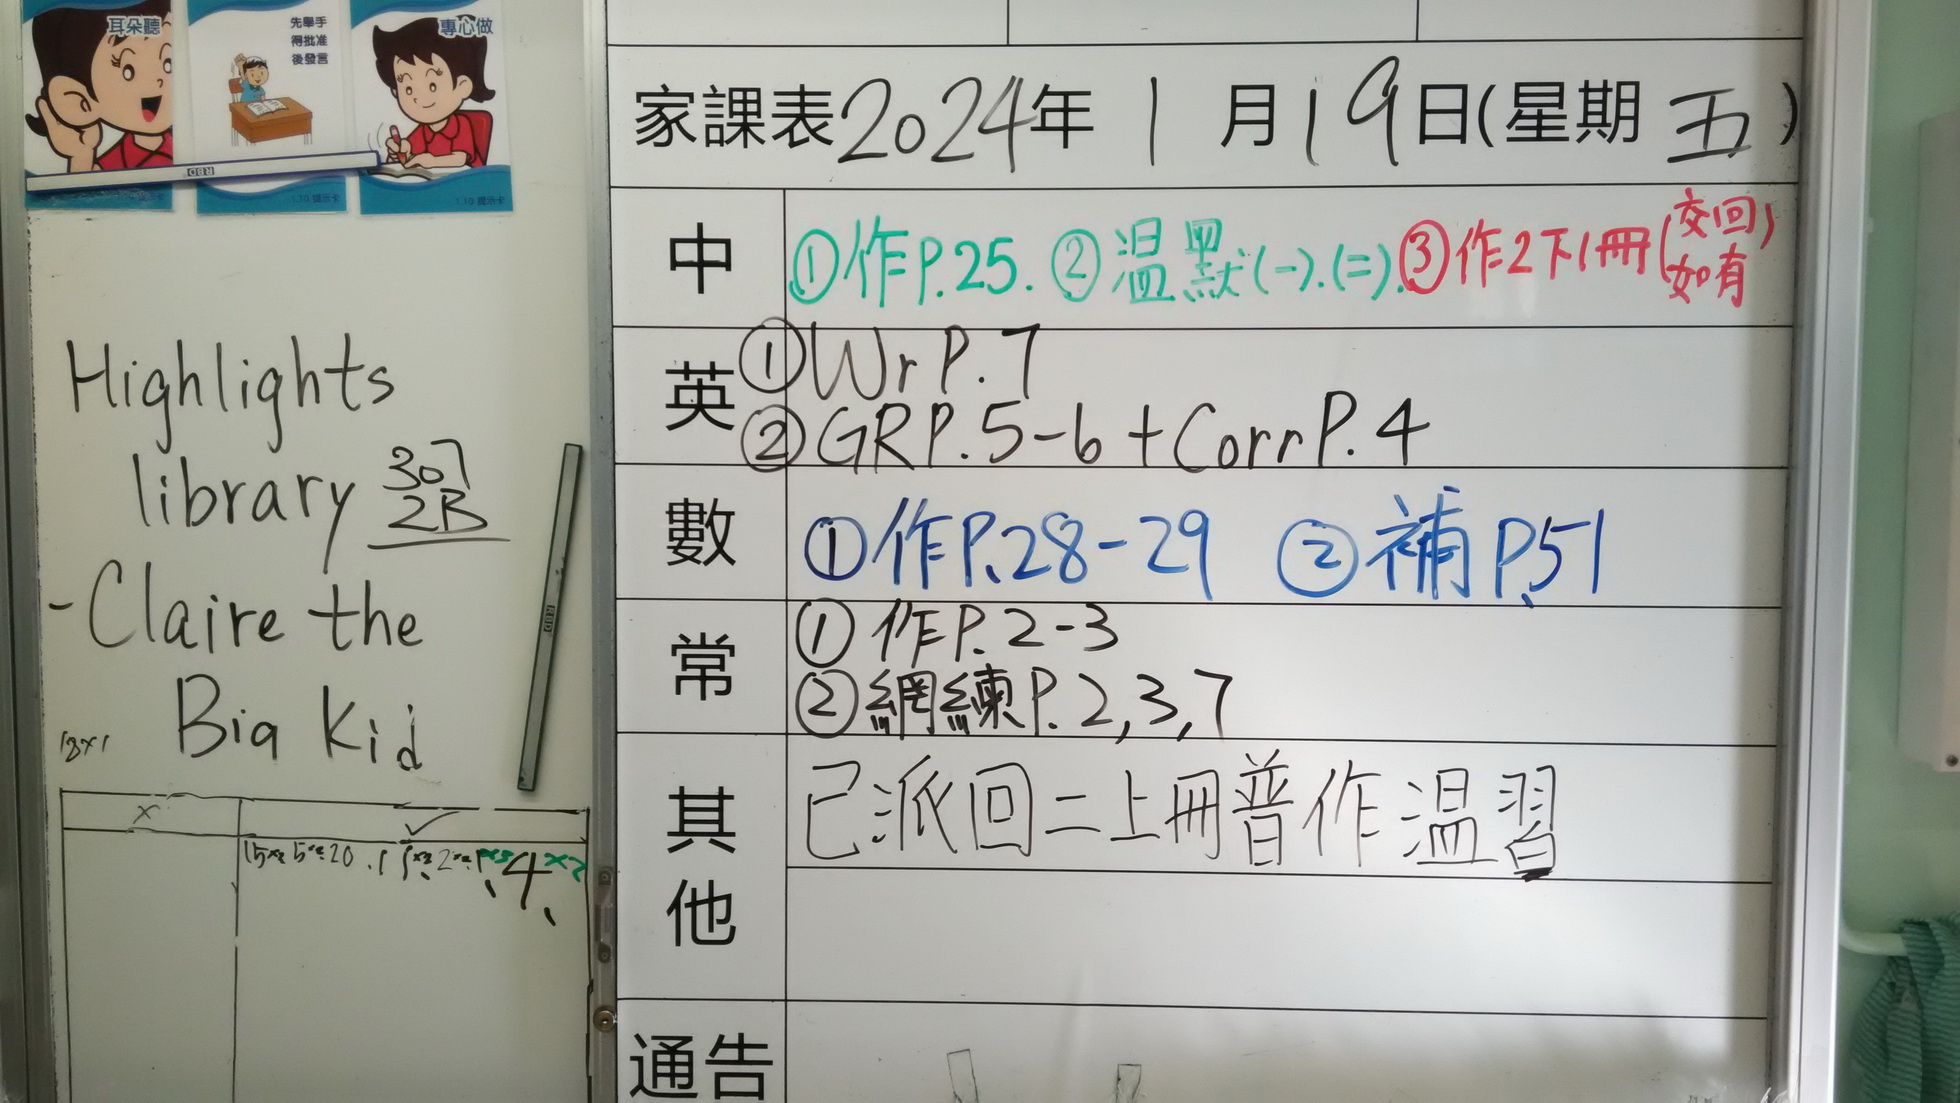 耳朵聽
先舉手
得批准
後發言
專心做
RBD
1.10 提示卡
1.10 提示卡
Highlights
library 307
2B
-Claire the
Big Kid
18×1
× ✓
家課表2024年 1 月19日(星期 五 )
中 ①作P.25. ②溫默(一).(二). ③作2下1冊(交回如有)
英 ①Wr P.7
②GR P.5-6 + Corr P.4
數 ①作P.28-29 ②補P.51
常 ①作P.2-3
②網練P.2,3,7
其他 已派回二上冊普作溫習
通告
RBD